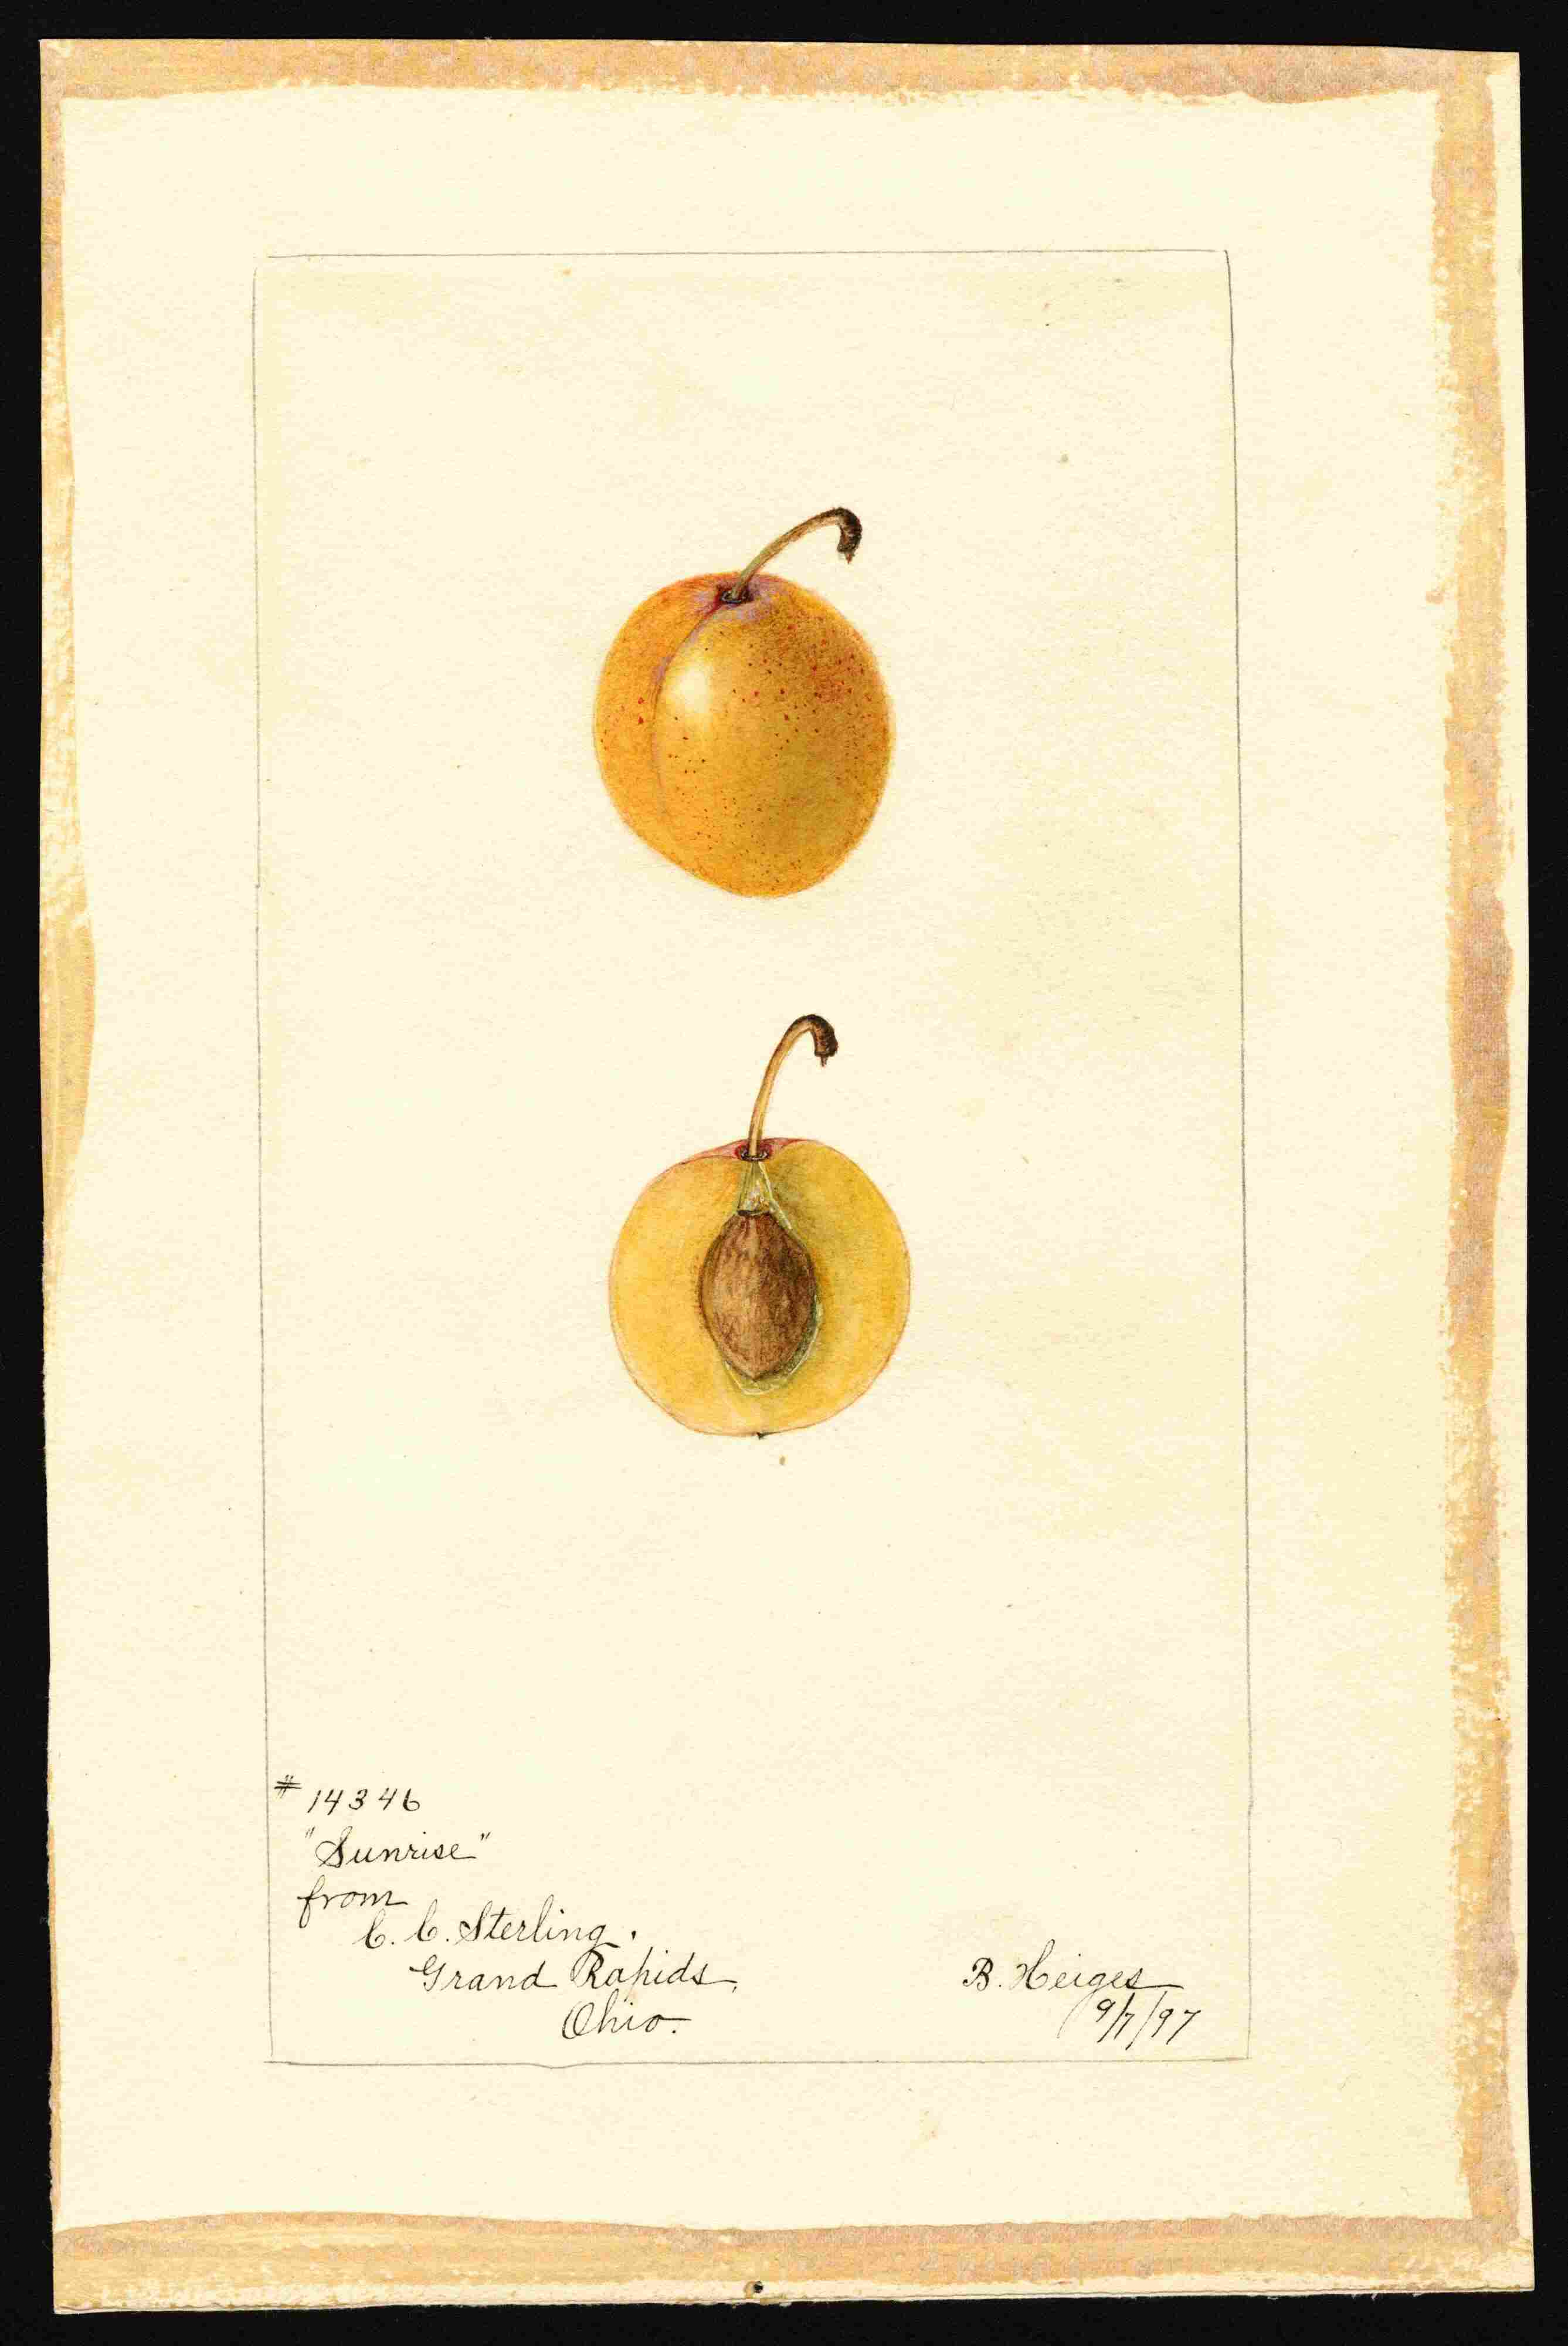 # 14346
"Sunrise"
from
C. C. Sterling.
Grand Rapids,
Ohio.
B. Heiges
9/7/97